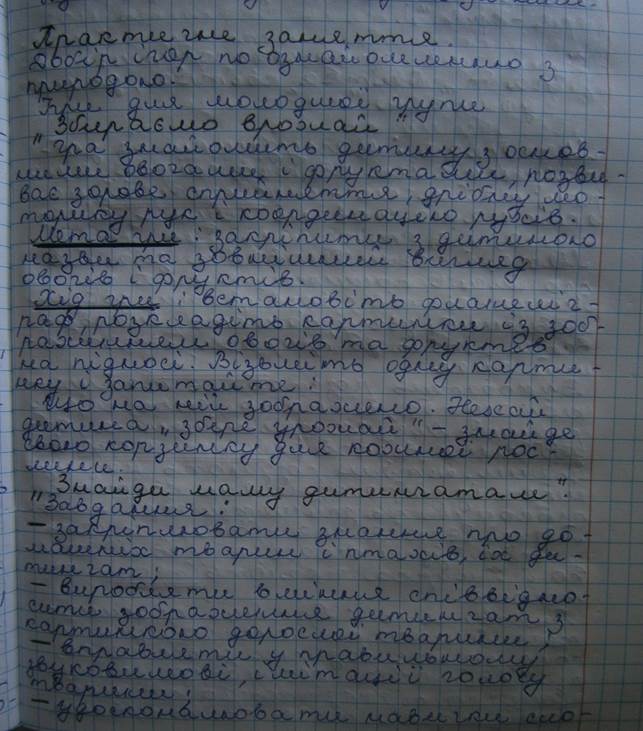 Практичне заняття.
Добір ігор по ознайомленню з
природою.
Ігри для молодшої групи
"Збираємо врожай"
Гра знайомить дитину з основ-
ними овочами і фруктами, розви-
ває зорове сприйняття, дрібну мо-
торику рук і координацію рухів.
Мета гри: закріпити з дитиною
назви та зовнішній вигляд
овочів і фруктів.
Хід гри: встановіть фланеліг-
раф, розкладіть картинки із зоб-
раженням овочів та фруктів
на підносі. Візьміть одну карти-
нку і запитайте:
що на ній зображено. Нехай
дитина "збере урожай" – знайде
свою корзинку для кожної рос-
лини.
"Знайди маму дитинчатам".
Завдання:
– закріплювати знання про до-
машніх тварин і птахів, їх ди-
тинчат;
– виробляти вміння співвідно-
сити зображення дитинчат з
картинкою дорослої тварини;
– вправляти у правильному
звуковимові, імітації голосу
тварини;
– удосконалювати навички сло-